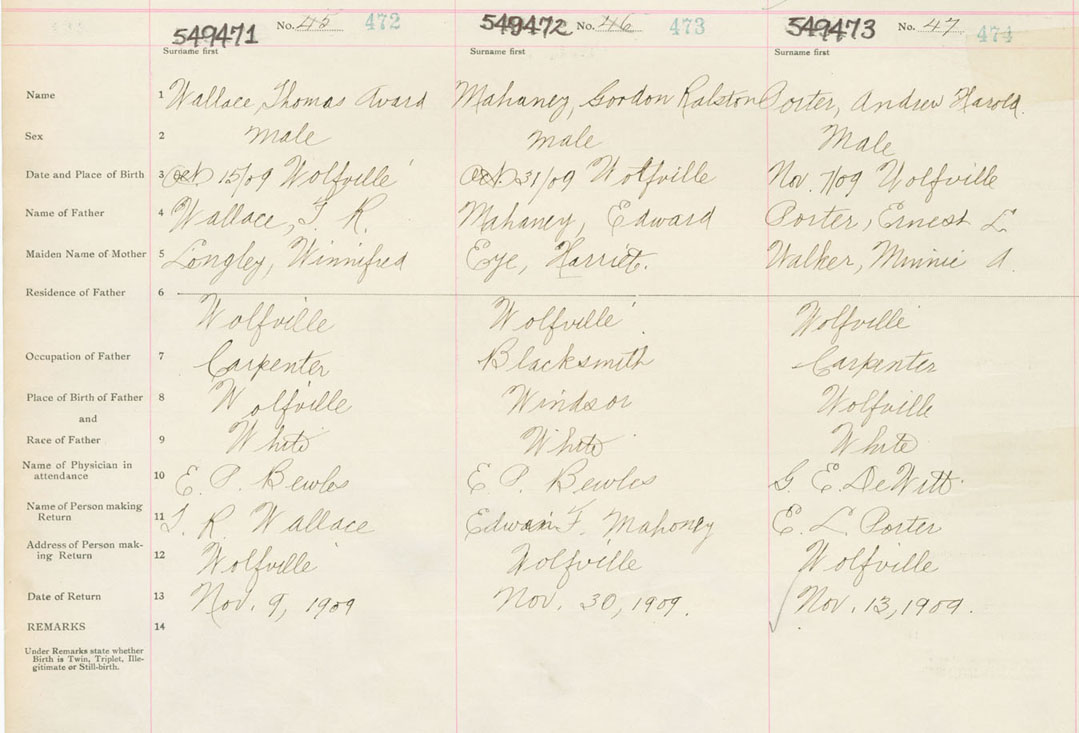 549471 No. 45 472 549472 No. 46 473 549473 No. 47 474
Surname first Surname first Surname first
Name 1 Wallace, Thomas Avard Mahaney, Gordon Ralston Porter, Andrew Harold.
Sex 2 male male Male
Date and Place of Birth 3 Oct. 15/09 Wolfville Oct. 31/09 Wolfville Nov. 7/09 Wolfville
Name of Father 4 Wallace, T. R. Mahaney, Edward Porter, Ernest L
Maiden Name of Mother 5 Longley, Winnifred Eye, Harriet. Walker, Minnie A.
Residence of Father 6
Wolfville Wolfville Wolfville
Occupation of Father 7 Carpenter Blacksmith Carpenter
Place of Birth of Father 8 Wolfville Windsor Wolfville
and
Race of Father 9 White White White
Name of Physician in
attendance 10 E. P. Bowles E. P. Bowles G. E. DeWitt
Name of Person making
Return 11 T. R. Wallace F. Mahoney E. L. Porter
Address of Person mak-
ing Return 12 Wolfville Wolfville Wolfville
Date of Return 13 Nov. 9, 1909 Nov. 30, 1909. Nov. 13, 1909.
REMARKS 14
Under Remarks state whether
Birth is Twin, Triplet, Ille-
gitimate or Still-birth.